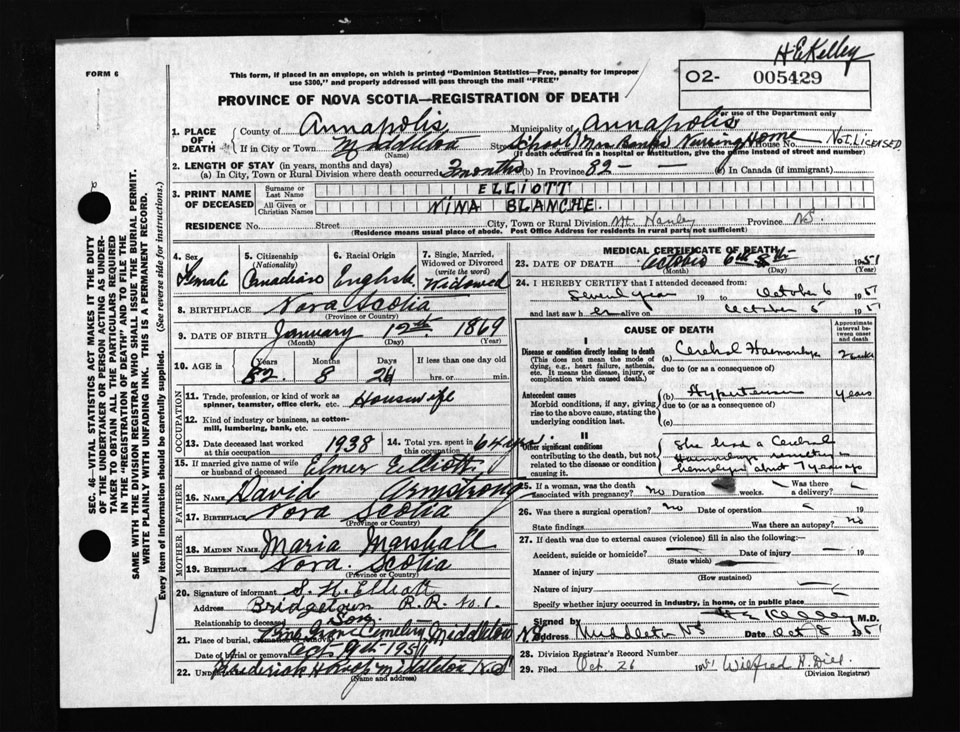 H E Kelley
FORM 6
This form, if placed in an envelope, on which is printed "Dominion Statistics—Free, penalty for improper
use $300," and properly addressed will pass through the mail "FREE"
02- 005429
PROVINCE OF NOVA SCOTIA—REGISTRATION OF DEATH
For use of the Department only
1. PLACE OF DEATH County of Annapolis Municipality of Annapolis
If in City or Town Middleton (Name) Street School Mrs Banks Nursing Home House No. NOT LICENSED
(If death occurred in a hospital or institution, give the name instead of street and number)
2. LENGTH OF STAY (in years, months and days)
(a) In City, Town or Rural Division where death occurred 2 months (b) In Province 82 — (c) In Canada (if immigrant)
3. PRINT NAME OF DECEASED Surname or Last Name ELLIOTT
All Given or Christian Names NINA BLANCHE
RESIDENCE No. Street City, Town or Rural Division Mt. Hanley Province N.S.
(Residence means usual place of abode. Post Office Address for residents in rural parts not sufficient)
4. Sex Female
5. Citizenship (Nationality) Canadian
6. Racial Origin English
7. Single, Married, Widowed or Divorced (write the word) Widowed
8. BIRTHPLACE Nova Scotia
(Province or Country)
9. DATE OF BIRTH January 12th 1869
(Month) (Day) (Year)
10. AGE in Years Months Days If less than one day old
82 8 24 hrs. or min.
OCCUPATION
11. Trade, profession, or kind of work as spinner, teamster, office clerk, etc. Housewife
12. Kind of industry or business, as cotton-mill, lumbering, bank, etc.
13. Date deceased last worked at this occupation 1938 14. Total yrs. spent in this occupation 64 yrs.
15. If married give name of wife or husband of deceased Elmer Elliott
FATHER
16. NAME David Armstrong
17. BIRTHPLACE Nova Scotia
(Province or Country)
MOTHER
18. MAIDEN NAME Maria Marshall
19. BIRTHPLACE Nova Scotia
(Province or Country)
20. Signature of informant S. H. Elliott
Address Bridgetown R.R. No. 1.
Relationship to deceased Son
21. Place of burial, cremation or removal Pine Grove Cemetery, Middleton N.S.
Date of burial or removal Oct 9th 1951
22. UNDERTAKER Middleton N.S.
(Name and address)
MEDICAL CERTIFICATE OF DEATH
23. DATE OF DEATH October 6th 1951
(Month) (Day) (Year)
24. I HEREBY CERTIFY that I attended deceased from
several years 19 to October 6 1951
and last saw her alive on October 5 1951
CAUSE OF DEATH
Approximate interval between onset and death
I
Disease or condition directly leading to death
(This does not mean the mode of dying, e.g., heart failure, asthenia, etc. It means the disease, injury, or complication which caused death.)
(a) Cerebral Haemorrhage 2 weeks
due to (or as a consequence of)
Antecedent causes
Morbid conditions, if any, giving rise to the above cause, stating the underlying condition last
(b) Hypertension years
due to (or as a consequence of)
(c)
II
Other significant conditions
contributing to the death, but not related to the disease or condition causing it.
She had a Cerebral
Haemorrhage resulting in
hemiplegia about 7 years ago
25. If a woman, was the death associated with pregnancy? no Duration weeks. Was there a delivery? —
26. Was there a surgical operation? no Date of operation —
State findings Was there an autopsy? no
27. If death was due to external causes (violence) fill in also the following:—
Accident, suicide or homicide? Date of injury — 19
(State which)
Manner of injury
(How sustained)
Nature of injury
Specify whether injury occurred in industry, in home, or in public place
Signed by H E Kelley M.D.
Address Middleton NS Date Oct 8 1951
28. Division Registrar's Record Number
29. Filed Oct. 26 1951 Wilfred
(Division Registrar)
SEC. 46—VITAL STATISTICS ACT MAKES IT THE DUTY
OF THE UNDERTAKER OR PERSON ACTING AS UNDER-
TAKER TO OBTAIN ALL THE PARTICULARS REQUIRED
IN THE "REGISTRATION OF DEATH" AND TO FILE THE
SAME WITH THE DIVISION REGISTRAR WHO SHALL ISSUE THE BURIAL PERMIT.
WRITE PLAINLY WITH UNFADING INK. THIS IS A PERMANENT RECORD.
Every item of information should be carefully supplied. (See reverse side for instructions.)